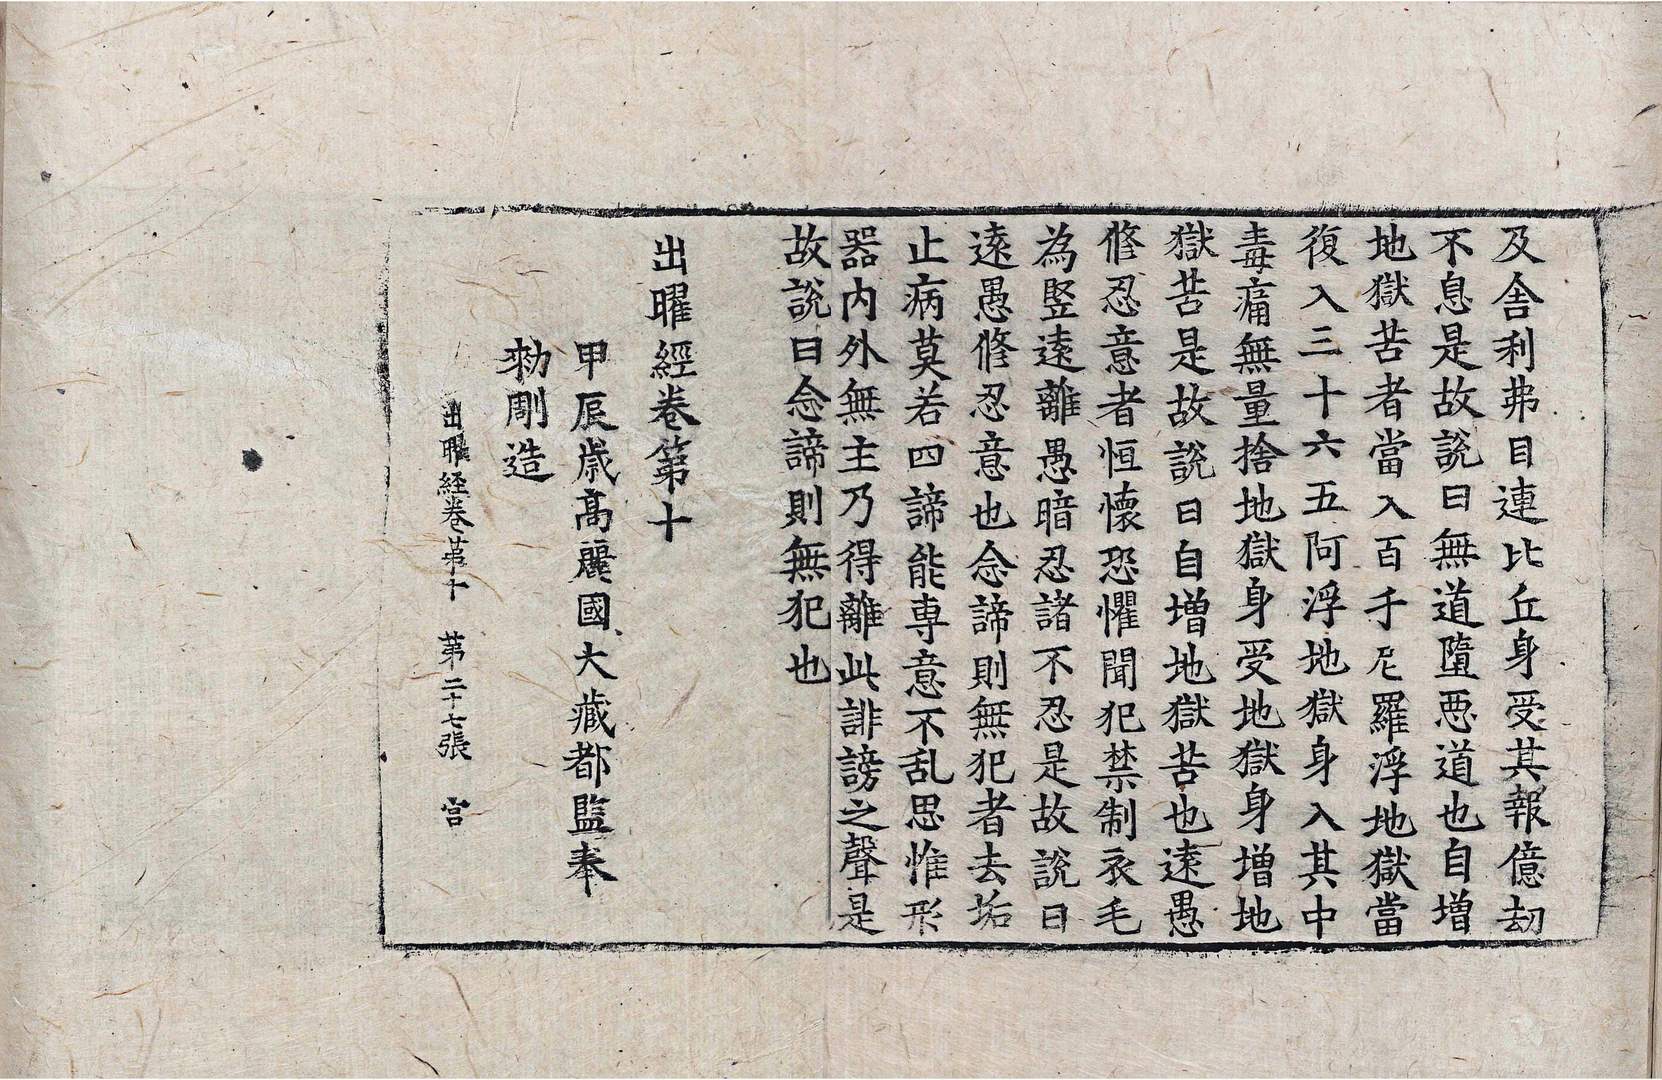 及舍利弗目連比丘身受其報億劫
不息是故說曰無道墮惡道也自增
地獄苦者當入百千尼羅浮地獄當
復入三十六五阿浮地獄身入其中
毒痛無量捨地獄身受地獄身增地
獄苦是故說曰自增地獄苦也遠愚
修忍意者恒懷恐懼聞犯禁制衣毛
為竪遠離愚暗忍諸不忍是故說曰
遠愚修忍意也念諦則無犯者去垢
止病莫若四諦能專意不乱思惟形
器內外無主乃得離此誹謗之聲是
故說曰念諦則無犯也
出曜經卷第十
甲辰歲高麗國大藏都監奉
勑彫造
出曜経卷苐十 苐二十七張 宮